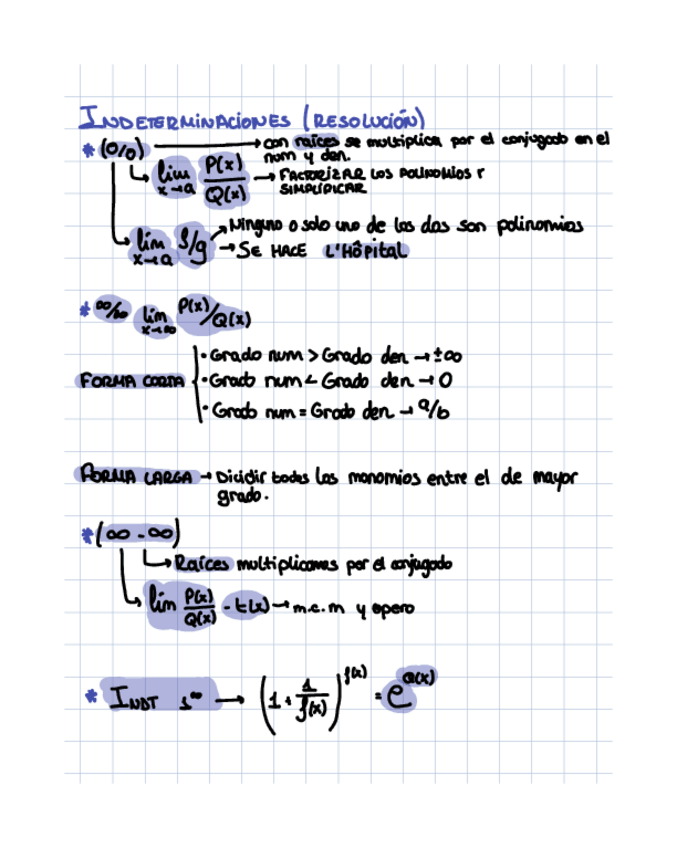 INDETERMINACIONES (RESOLUCIÓN)
* (0/0) → con raíces se multiplica por el conjugado en el
num y den.
lim x→a P(x)/Q(x) → FACTORIZAR LOS POLINOMIOS Y
SIMPLIFICAR
lim x→a f/g → Ninguno o solo uno de los dos son polinomios
→ SE HACE L'Hôpital
* ∞/∞ lim x→∞ P(x)/Q(x)
· Grado num > Grado den → ±∞
FORMA CORTA · Grado num < Grado den → 0
· Grado num = Grado den → a/b
FORMA LARGA → Dividir todos los monomios entre el de mayor
grado.
* (∞ - ∞)
→ Raíces multiplicamos por el conjugado
lim P(x)/Q(x) - t(x) → m.c.m y opero
* INDT 1^∞ → (1 + 1/f(x))^f(x) = e^Q(x)